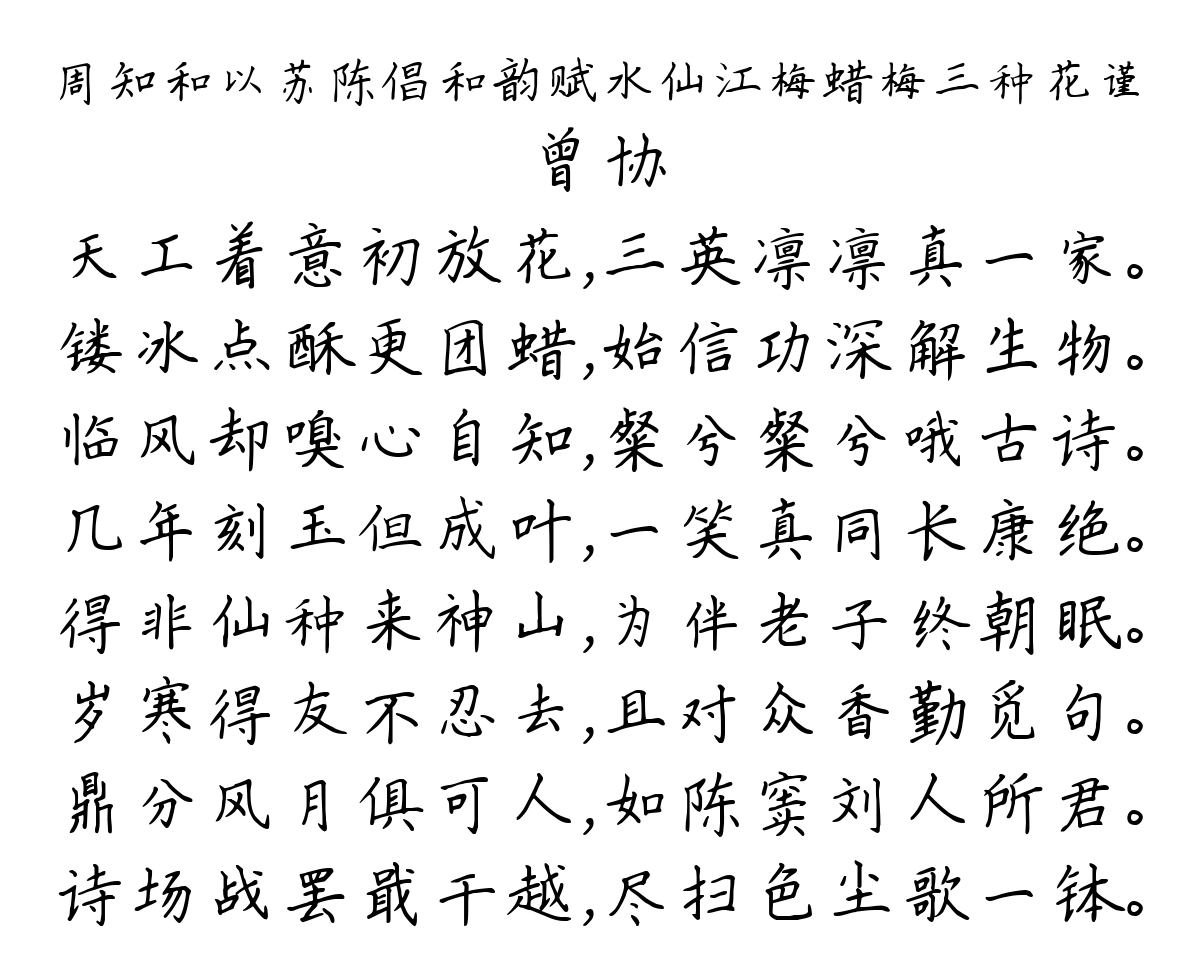 周知和以苏陈倡和韵赋水仙江梅蜡梅三种花谨
曾协
天工着意初放花,三英凛凛真一家。
镂冰点酥更团蜡,始信功深解生物。
临风却嗅心自知,粲兮粲兮哦古诗。
几年刻玉但成叶,一笑真同长康绝。
得非仙种来神山,为伴老子终朝眠。
岁寒得友不忍去,且对众香勤觅句。
鼎分风月俱可人,如陈窦刘人所君。
诗场战罢戢干越,尽扫色尘歌一钵。